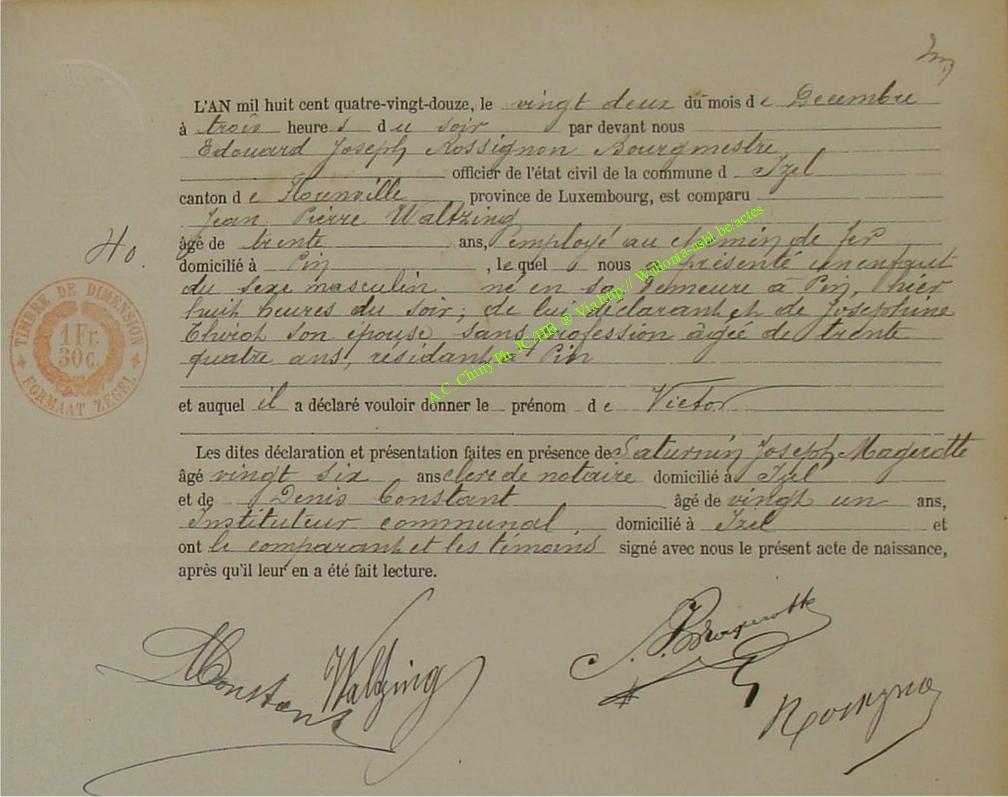 L'AN mil huit cent quatre-vingt-douze, le vingt deux du mois de Decembre
à trois heures du soir par devant nous
Edouard Joseph Rossignon Bourgmestre
officier de l'état civil de la commune d Izel
canton de Florenville province de Luxembourg, est comparu
Jean Pierre Waltzing
40.
âgé de trente ans, employé au chemin de fer
domicilié à Pin, lequel a nous a présenté un enfant
du sexe masculin né en sa demeure à Pin, hier
huit heures du soir, de lui déclarant et de Josephine
Thiriot son épouse sans profession âgée de trente
quatre ans, résidant à Pin
TIMBRE DE DIMENSION
1 Fr.
30 c.
FORMAAT ZEGEL
et auquel il a déclaré vouloir donner le prénom de Victor
Les dites déclaration et présentation faites en présence de Saturnin Joseph Magerotte
âgé vingt six ans clerc de notaire domicilié à Izel
et de Denis Constant âgé de vingt un ans,
Instituteur communal domicilié à Izel et
ont le comparant et les témoins signé avec nous le présent acte de naissance,
après qu'il leur en a été fait lecture.
A.C. Chiny Ph. JC/HB ® Via http:// Wallonia-asbl.be/actes
Constant Waltzing